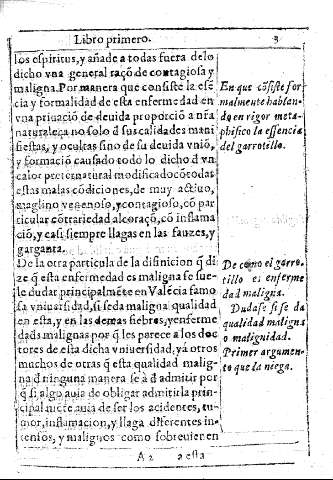 Libro primero. 3
los espiritus, y añade a todas fuera delo
dicho vna general raçõ de contagiosa y
maligna. Por manera que consiste la esẽ
cia y formalidad de esta enfermedad en
vna priuaciõ de deuida proporciõ a nr̃a
naturaleça no solo đ sus calidades mani
fiestas, y ocultas sino de su deuida vniõ,
y formaciõ causado todo lo dicho đ vn
calor preternatural modificado cõ todas
estas malas cõdiciones, de muy actiuo,
maglino venenoso, y contagioso, cõ par
ticular cõtrariedad al coraçõ, cõ inflama
ciõ, y casi siempre llagas en las fauzes, y
garganta.
De la otra particula de la difinicion q̃ di
ze q̃ esta enfermedad es maligna se sue-
le dudar principalmẽte en Valẽcia famo
sa vniuersidad, si se da maligna qualidad
en esta, y en las demas fiebres, y enferme
dads malignas por q̃ les parece a los doc
tores de esta dicha vniuersidad, y a otros
muchos de otras q̃ esta qualidad malig-
na đ ninguna manera se à đ admitir por
q̃ si algo auia de obligar admitirla prin-
cipalmẽte auia de ser los acidentes, tu-
mor, inflamacion, y llaga diferentes in-
tensos, y malignos como sobreuienen
A 2 a esta
En que cõsiste for
malmente hablan-
do en rigor meta-
phisico la essencia
del garrotillo.
De como el garro-
tillo es enferme
dad maligna.
Dudase si se da
qualidad maligna
o malignidad.
Primer argumen-
to que la niega.